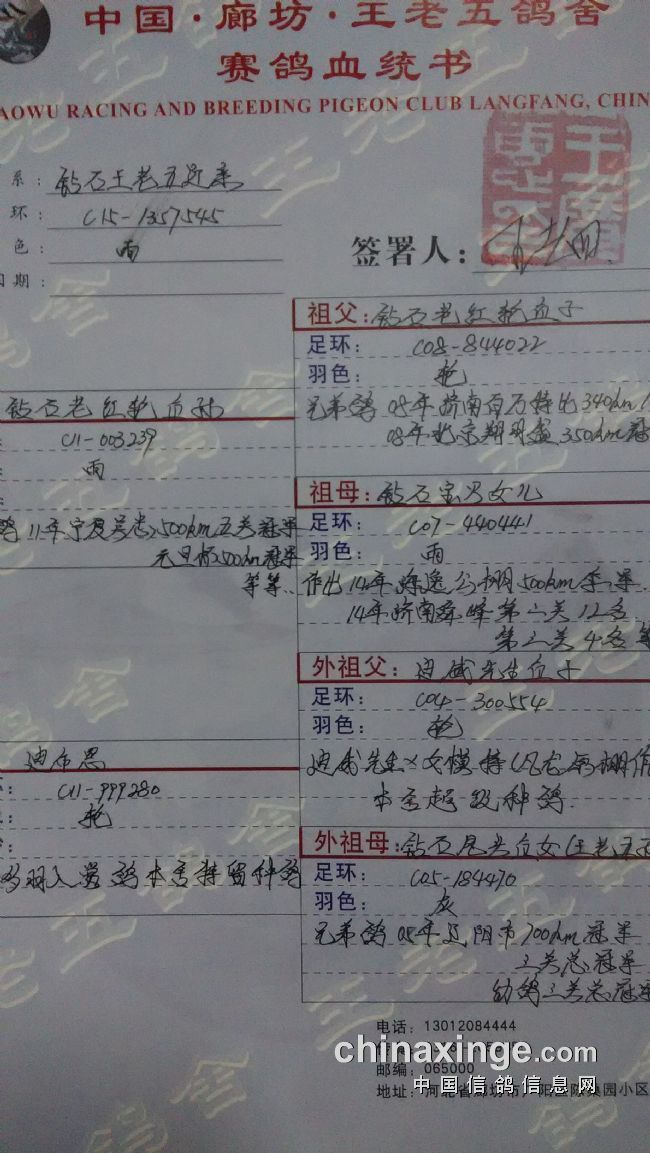 中国·廊坊·王老五鸽舍
赛鸽血统书
AOWU RACING AND BREEDING PIGEON CLUB LANGFANG, CHIN
系: 钻石王老五近亲
环: C15-1357545
色: 雨
日期:
签署人:
祖父: 钻石老红轮血子
足环: C08-844022
羽色: 轮
兄弟鸽 05年济南百万特比 340km
08年北京翔羽盃 350km冠
钻石老红轮血孙
C11-003239
雨
鸽11年宁夏关赛500km五关冠军
元旦杯500km冠军
等等..
祖母: 钻石宝贝女儿
足环: C07-440441
羽色: 雨
作出14年 公棚500km季军
14年济南 峰第二关12名
第三关4名等
外祖父: 迪威先生血子
足环: C04-300554
羽色: 轮
迪威先生×女模特
本舍超级种鸽
C11-999280
轮
多羽入赏鸽本舍特留种鸽
外祖母: 钻石 女(王老五
足环: C05-184470
羽色: 灰
兄弟鸽 05年辽阳市700km冠军
三关总冠军
幼鸽三关总冠军
电话: 13012084444
邮编: 065000
地址: 河北省廊坊市广阳区 园小区
chinaxinge.com
中国信鸽信息网